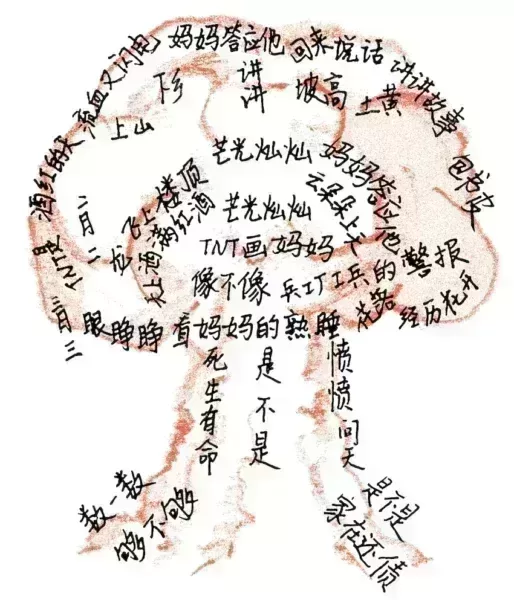 酒红的天 流血又闪电 妈妈答应他 回来说话 讲讲故事 自书皮
上山 下乡 讲讲 坡高 土黄
芒光灿灿 妈妈答应他
云朵朵上天
二月二 龙飞上楼顶
天上酒满红酒
芒光灿灿
TNT画妈妈
TNT是
像不像 兵工厂工兵的
花器 警报
经历花开
三月三 眼睁睁 看妈妈的熟睡
死生有命
是不是
愤愤问天
数一数
够不够
是不是
家在还债